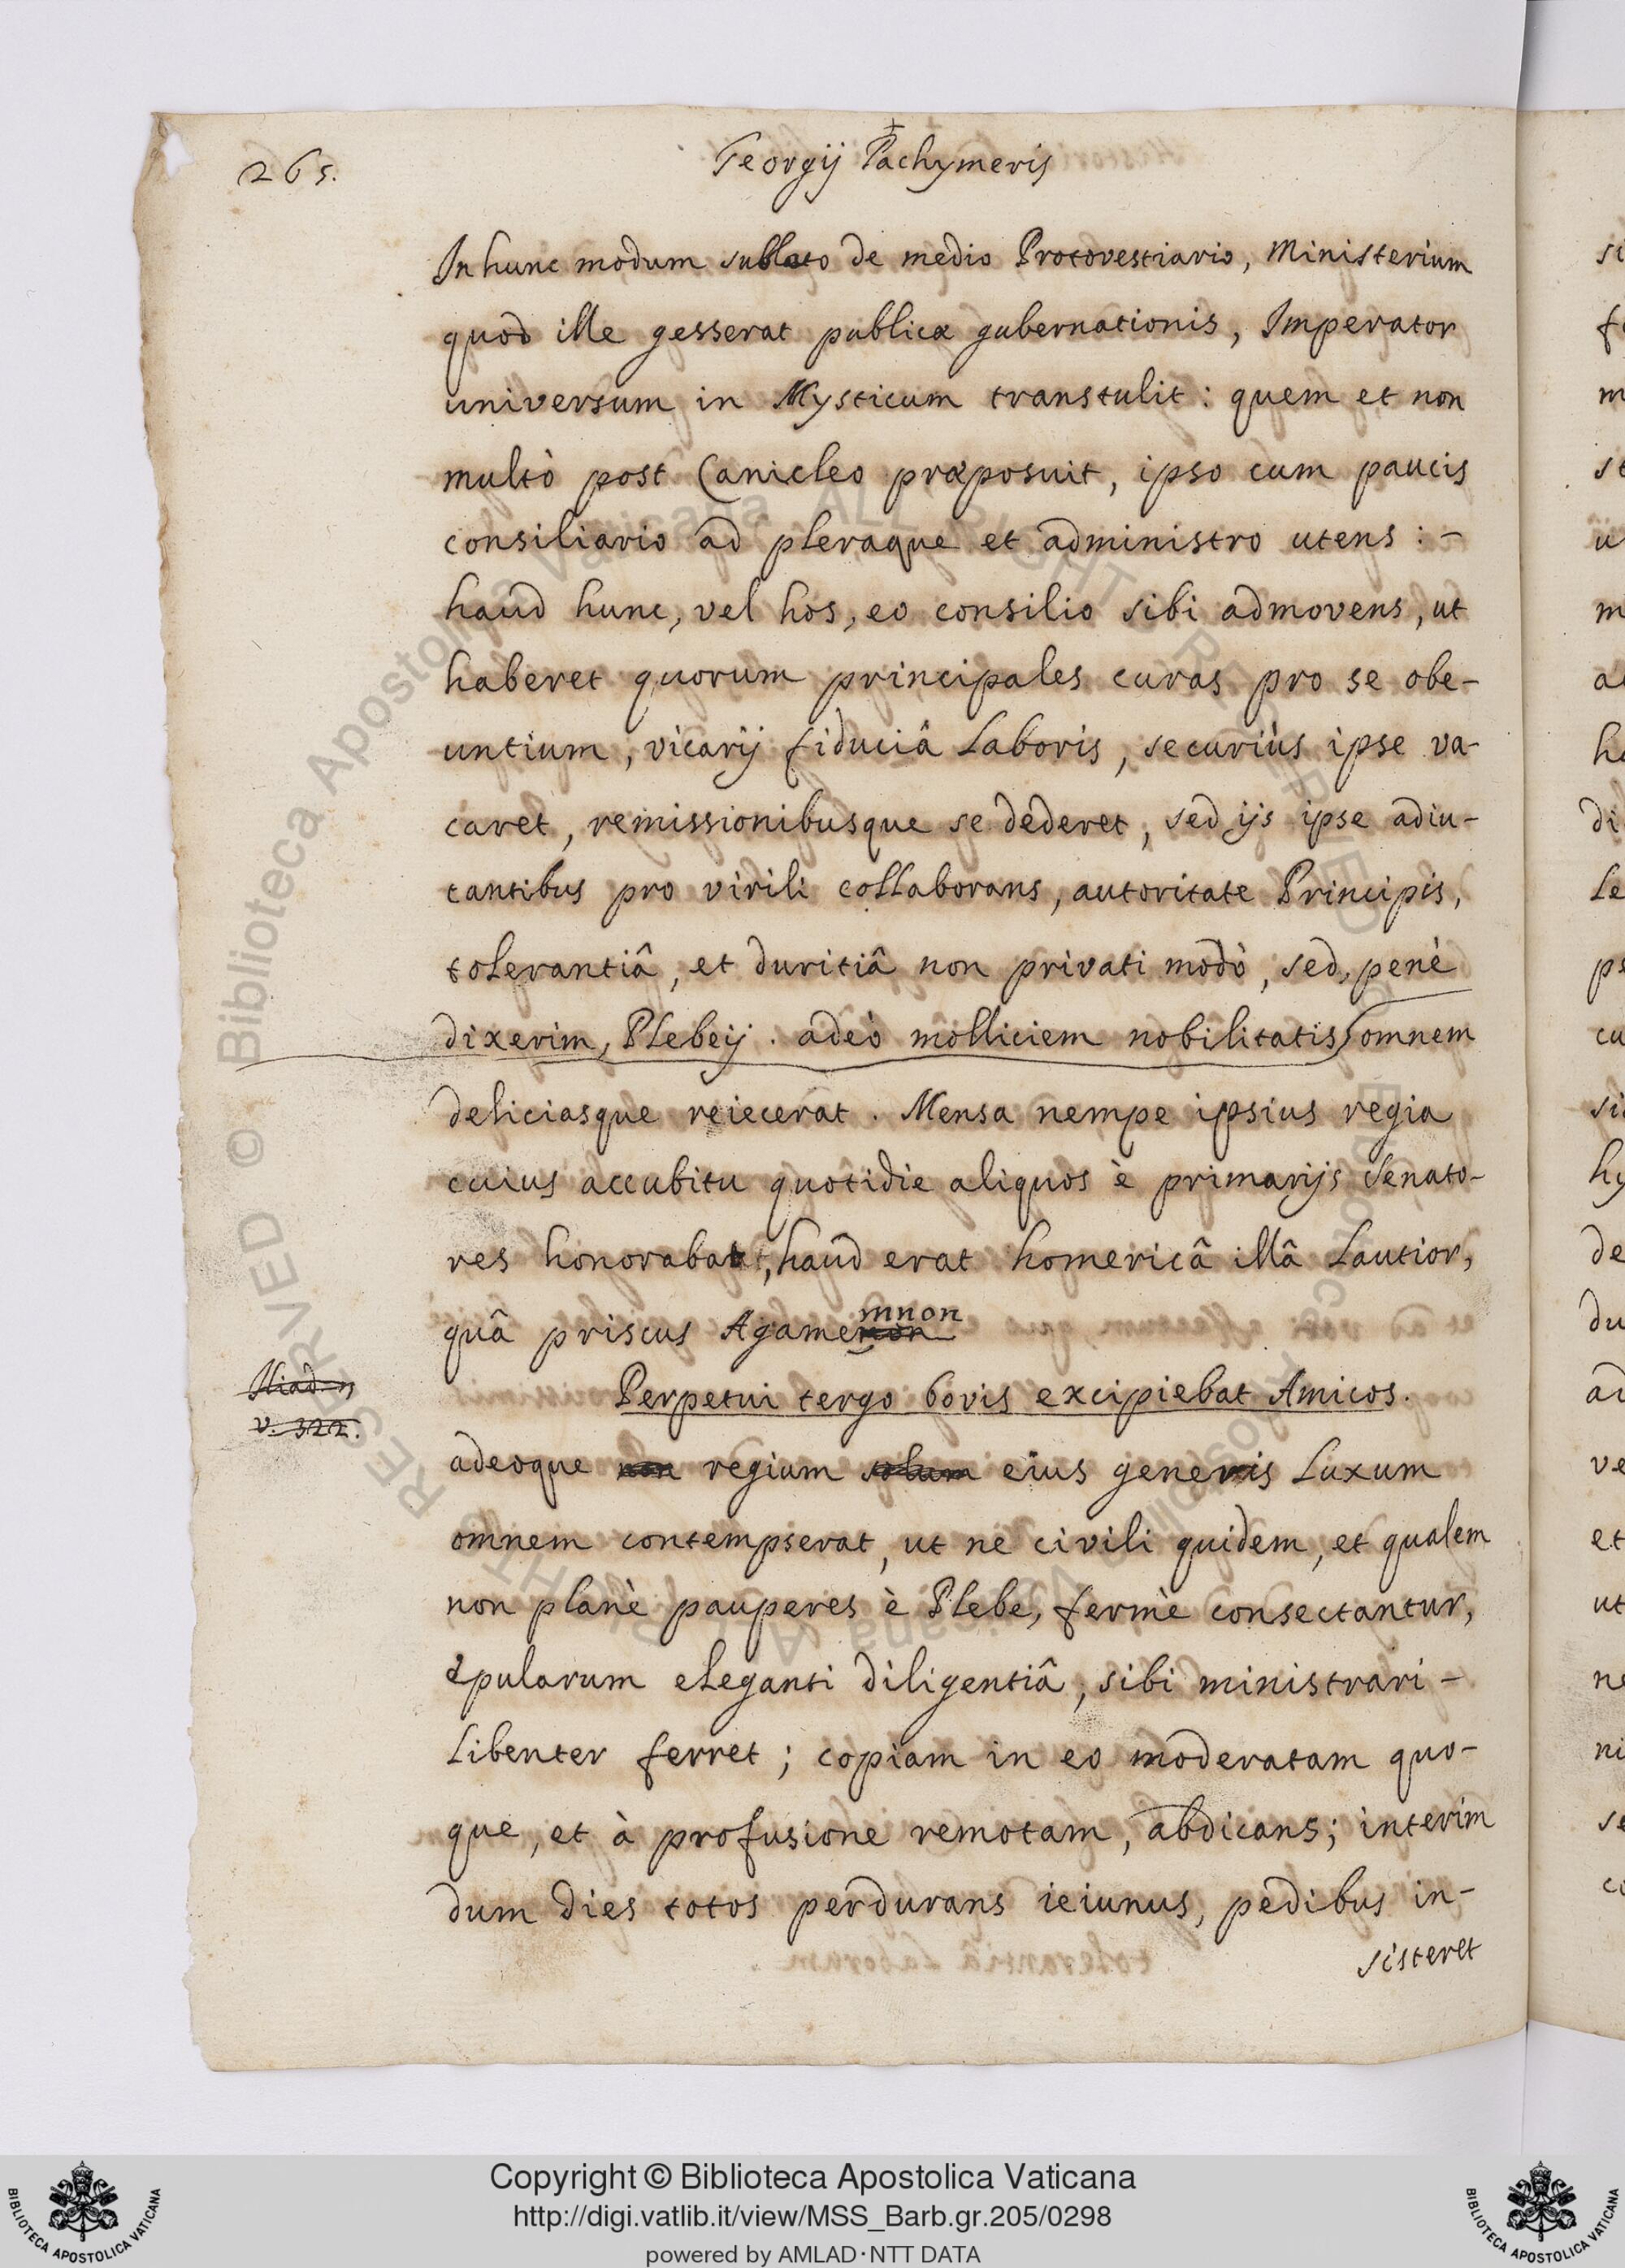 265.
Georgij Pachymeris
In hunc modum sublato de medio Protovestiario, Ministerium
quod ille gesserat publicæ gubernationis, Imperator
universum in Mysticum transtulit: quem et non
multò post Canicleo præposuit, ipso cum paucis
consiliario ad pleraque et administro utens: -
haud hunc, vel hos, eo consilio sibi admovens, ut
haberet quorum principales curas pro se obe-
untium, vicarij fiduciâ laboris, securiùs ipse va-
caret, remissionibusque se dederet, sed ijs ipse adiu-
tantibus pro virili collaborans, autoritate Principis,
tolerantiâ, et duritiâ non privati modò, sed, penè
dixerim, Plebeij. adeò molliciem nobilitatis omnem
deliciasque reiecerat. Mensa nempe ipsius regia
cuius accubitu quotidie aliquos è primarijs Senato-
res honorabat, haud erat homericâ illâ lautior,
quâ priscus Agamemnon
Perpetui tergo bovis excipiebat Amicos.
Iliad. η
v. 322.
adeoque non regium solum eius generis luxum
omnem contempserat, ut ne civili quidem, et qualem
non planè pauperes è Plebe, fermè consectantur,
epularum eleganti diligentiâ, sibi ministrari -
libenter ferret; copiam in eo moderatam quo-
que, et à profusione remotam, abdicans; interim
dum dies totos perdurans ieiunus, pedibus in-
sisteret
Copyright © Biblioteca Apostolica Vaticana
http://digi.vatlib.it/view/MSS_Barb.gr.205/0298
powered by AMLAD·NTT DATA
BIBLIOTECA APOSTOLICA VATICANA
BIBLIOTECA APOSTOLICA VATICANA